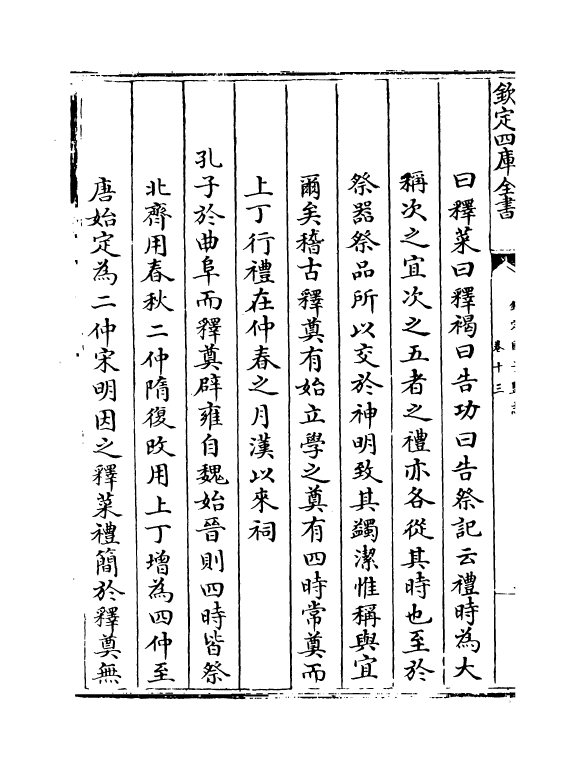 欽定四庫全書
卷十三
曰釋菜曰釋褐曰告功曰告祭記云禮時為大
稱次之宜次之五者之禮亦各從其時也至於
祭器祭品所以交於神明致其蠲潔惟稱與宜
爾矣稽古釋奠有始立學之奠有四時常奠而
上丁行禮在仲春之月漢以來祠
孔子於曲阜而釋奠辟雍自魏始晉則四時皆祭
北齊用春秋二仲隋復改用上丁增為四仲至
唐始定為二仲宋明因之釋菜禮簡於釋奠無